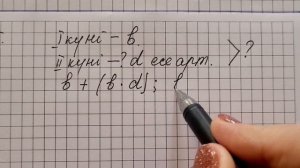 I күні – в.
II күні – ? d есе арт. > ?
в + (в · d);